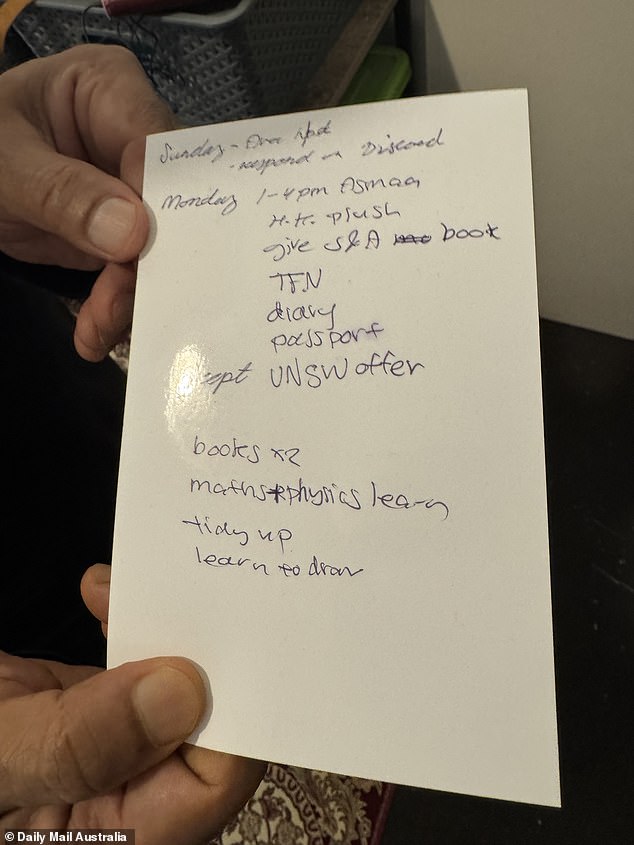 Sunday -
- respond Discord
Monday 1-4pm Asmaa
H.K. plush
give S&A book
TFN
diary
passport
UNSW offer
books x2
maths+physics learn
tidy up
learn to draw
© Daily Mail Australia